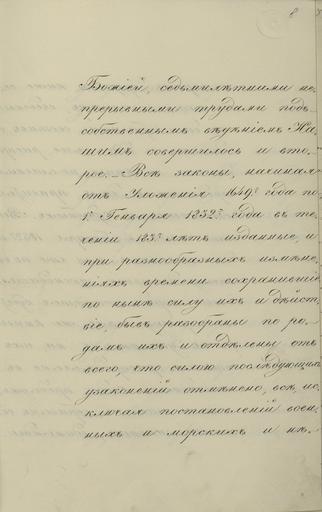 8
Божіей, седьмилѣтними не
прерывными трудами подъ
собственнымъ вѣдѣніемъ На
шимъ совершилось и вто
рое. Всѣ законы, начиная
отъ Уложенія 1649.г года по
1.е Генваря 1832.г года въ те
ченіи 183.хъ лѣтъ изданные, и
при разнообразныхъ измѣне
ніяхъ времени сохранившіе
по нынѣ силу ихъ и дѣйст
віе, бывъ разобраны по ро
дамъ ихъ и отдѣлены отъ
всего, что силою послѣдующихъ
узаконеній отмѣнено, всѣ, ис
ключая постановленій воен
ныхъ и морскихъ и нѣ